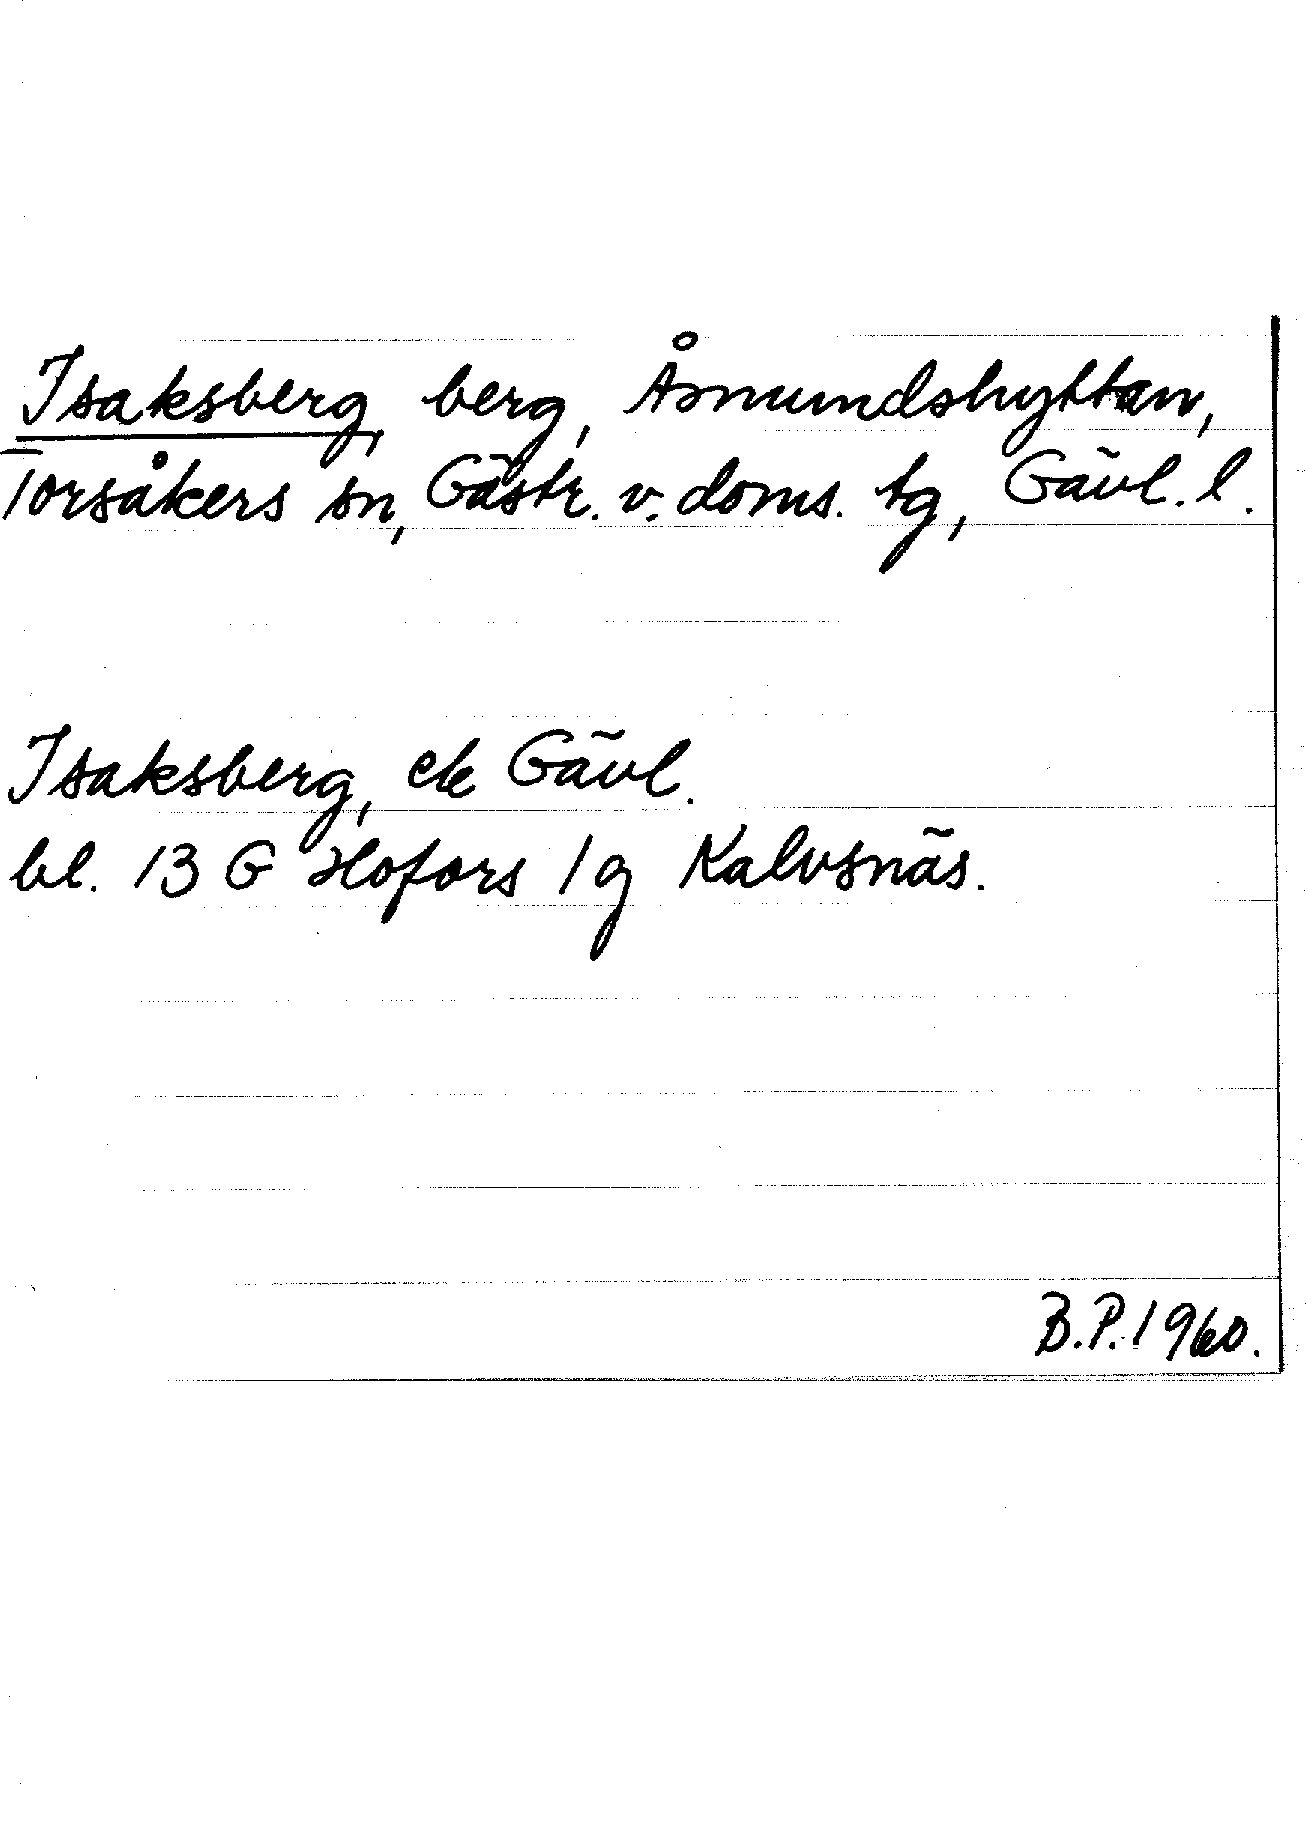 Isaksberg, berg, Åsmundshyttan,
Torsåkers sn, Gästr. v. doms. tg, Gävl. l.
Isaksberg, ek Gävl.
bl. 13 G Hofors 1 g Kalvsnäs.
B.P. 1960.